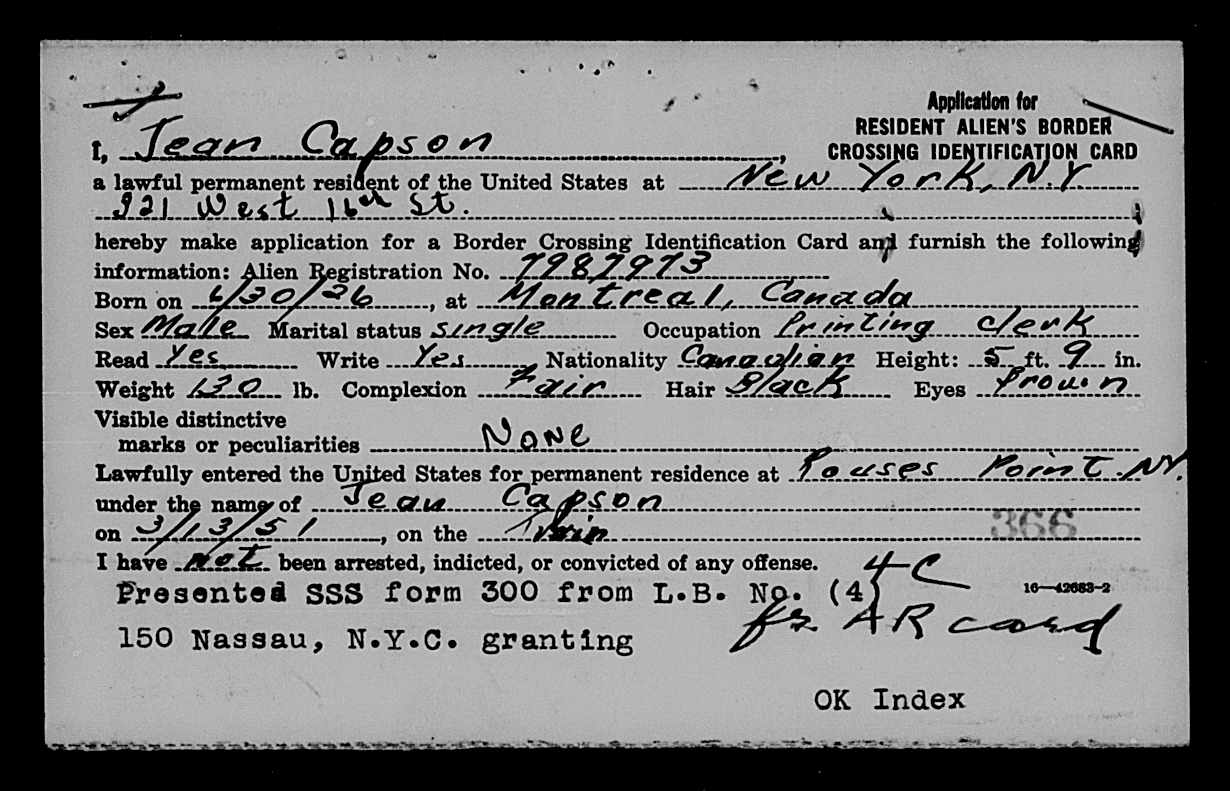 Application for
RESIDENT ALIEN'S BORDER
CROSSING IDENTIFICATION CARD
I, Jean Capson,
a lawful permanent resident of the United States at New York, N.Y.
321 West 16th St.
hereby make application for a Border Crossing Identification Card and furnish the following
information: Alien Registration No. 7987973
Born on 6/30/26, at Montreal, Canada
Sex Male Marital status single Occupation Printing clerk
Read Yes Write Yes Nationality Canadian Height: 5 ft. 9 in.
Weight 130 lb. Complexion Fair Hair Black Eyes Brown
Visible distinctive
marks or peculiarities None
Lawfully entered the United States for permanent residence at Rouses Point. NY.
under the name of Jean Capson
on 3/13/51, on the Train
366
I have not been arrested, indicted, or convicted of any offense.
4-C
Presented SSS form 300 from L.B. No. (4)
16—42683-2
150 Nassau, N.Y.C. granting
AR card
OK Index